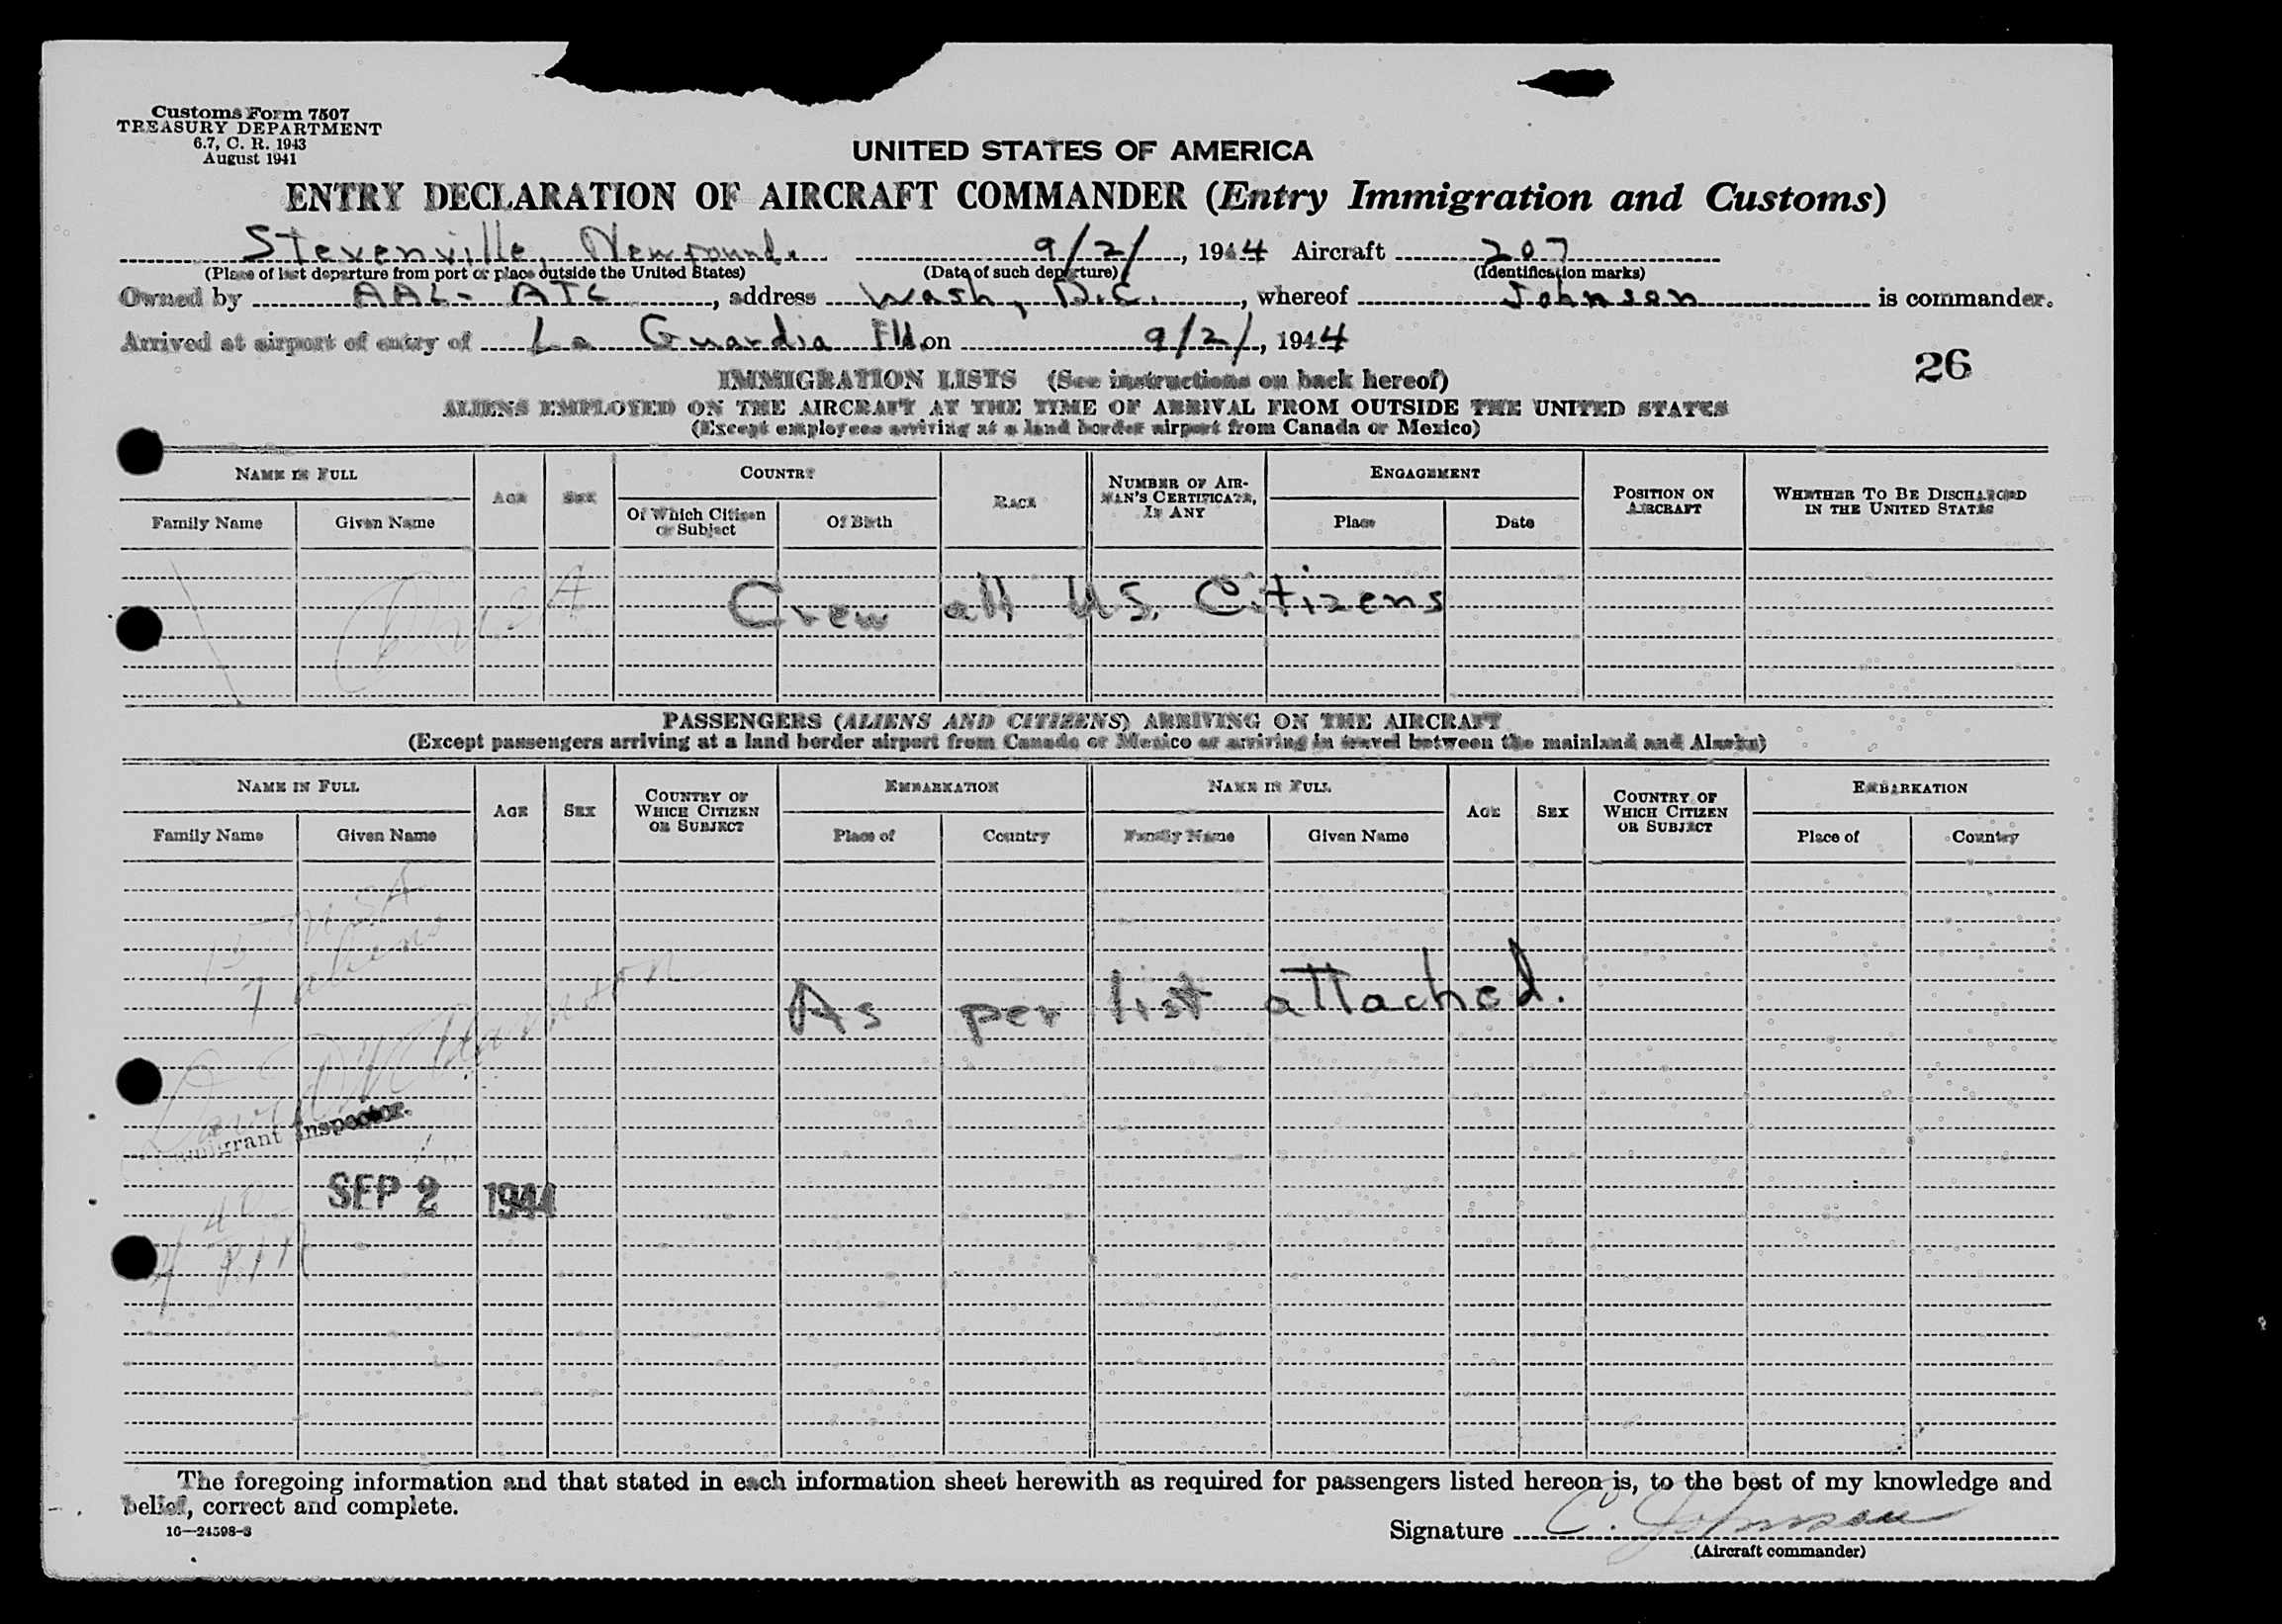 Customs Form 7507
TREASURY DEPARTMENT
6.7, C. R. 1943
August 1941
UNITED STATES OF AMERICA
ENTRY DECLARATION OF AIRCRAFT COMMANDER (Entry Immigration and Customs)
Stevenville, Newfound. 9/2/, 1944 Aircraft 207
(Place of last departure from port or place outside the United States) (Date of such departure) (Identification marks)
Owned by AAL- ATC, address Wash, D.C., whereof Johnson is commander.
Arrived at airport of entry of La Guardia Fld. on 9/2/, 1944
26
IMMIGRATION LISTS (See instructions on back hereof)
ALIENS EMPLOYED ON THE AIRCRAFT AT THE TIME OF ARRIVAL FROM OUTSIDE THE UNITED STATES
(Except employees arriving at a land border airport from Canada or Mexico)
NAME IN FULL AGE SEX COUNTRY RACE NUMBER OF AIRMAN'S CERTIFICATE, IF ANY ENGAGEMENT POSITION ON AIRCRAFT WHETHER TO BE DISCHARGED IN THE UNITED STATES
Family Name Given Name Of Which Citizen or Subject Of Birth Place Date
Crew all U.S. Citizens
PASSENGERS (ALIENS AND CITIZENS) ARRIVING ON THE AIRCRAFT
(Except passengers arriving at a land border airport from Canada or Mexico or arriving in travel between the mainland and Alaska)
NAME IN FULL AGE SEX COUNTRY OF WHICH CITIZEN OR SUBJECT EMBARKATION NAME IN FULL AGE SEX COUNTRY OF WHICH CITIZEN OR SUBJECT EMBARKATION
Family Name Given Name Place of Country Family Name Given Name Place of Country
15 USA
7 aliens
As per list attached.
Immigrant Inspector.
SEP 2 1944
The foregoing information and that stated in each information sheet herewith as required for passengers listed hereon is, to the best of my knowledge and
belief, correct and complete.
16—24598-3
Signature C. Johnson
(Aircraft commander)